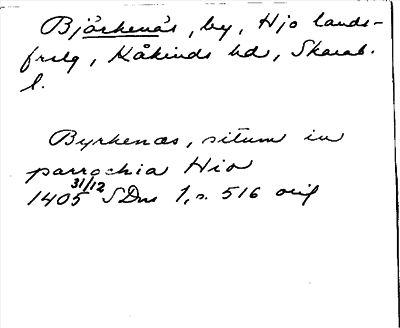 Björkenäs, by, Hjo lands-
frslg, Kåkinds hd, Skarab.
l.
Byrkenæs, situm in
parrochia Hio
31/12
1405 SDns 1, s. 516 orig